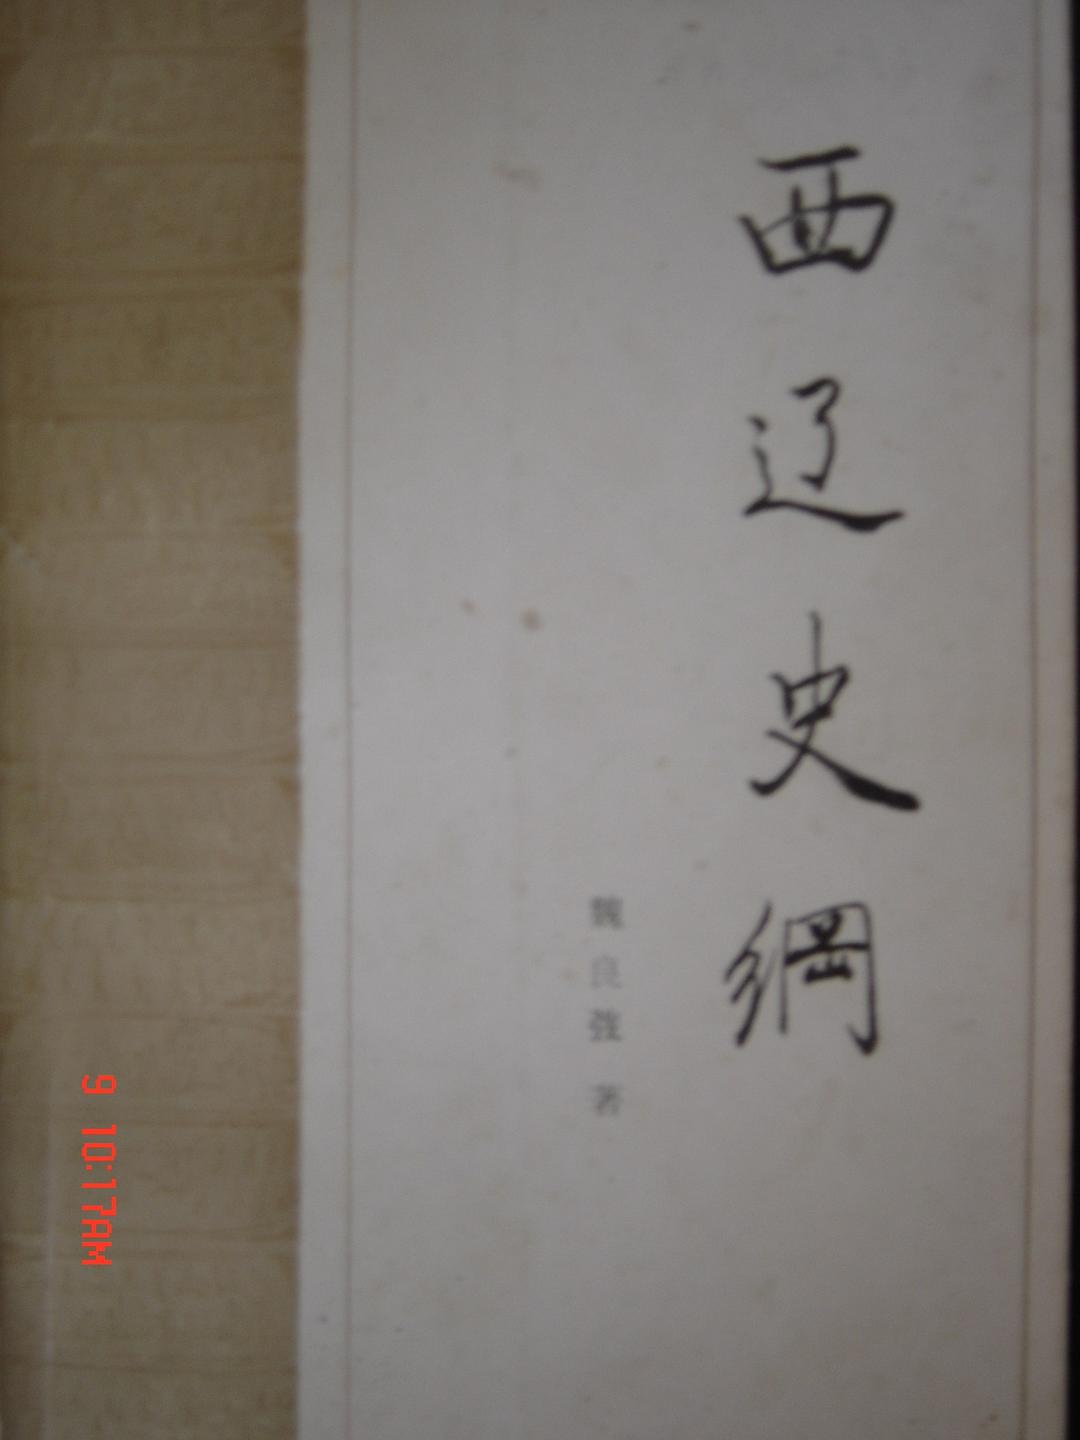 西辽史綱
魏良弢 著
9 10:17AM